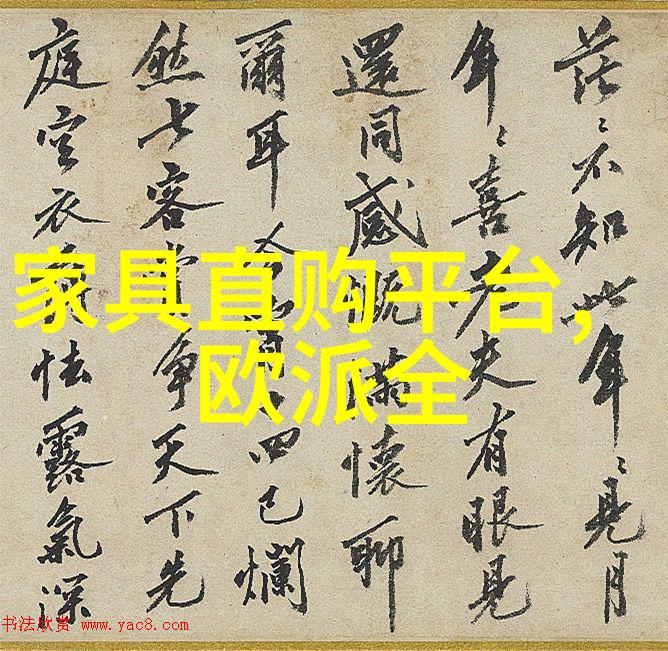 茫〻不知此年〻見月
年〻喜老夫有眼見
還同感慨滿懷聊
爾耳 四已爛
然七客 爭天下先
庭空衣 怯露氣深
家具直购平台,
欧派全
书法欣赏 www.yac8.com